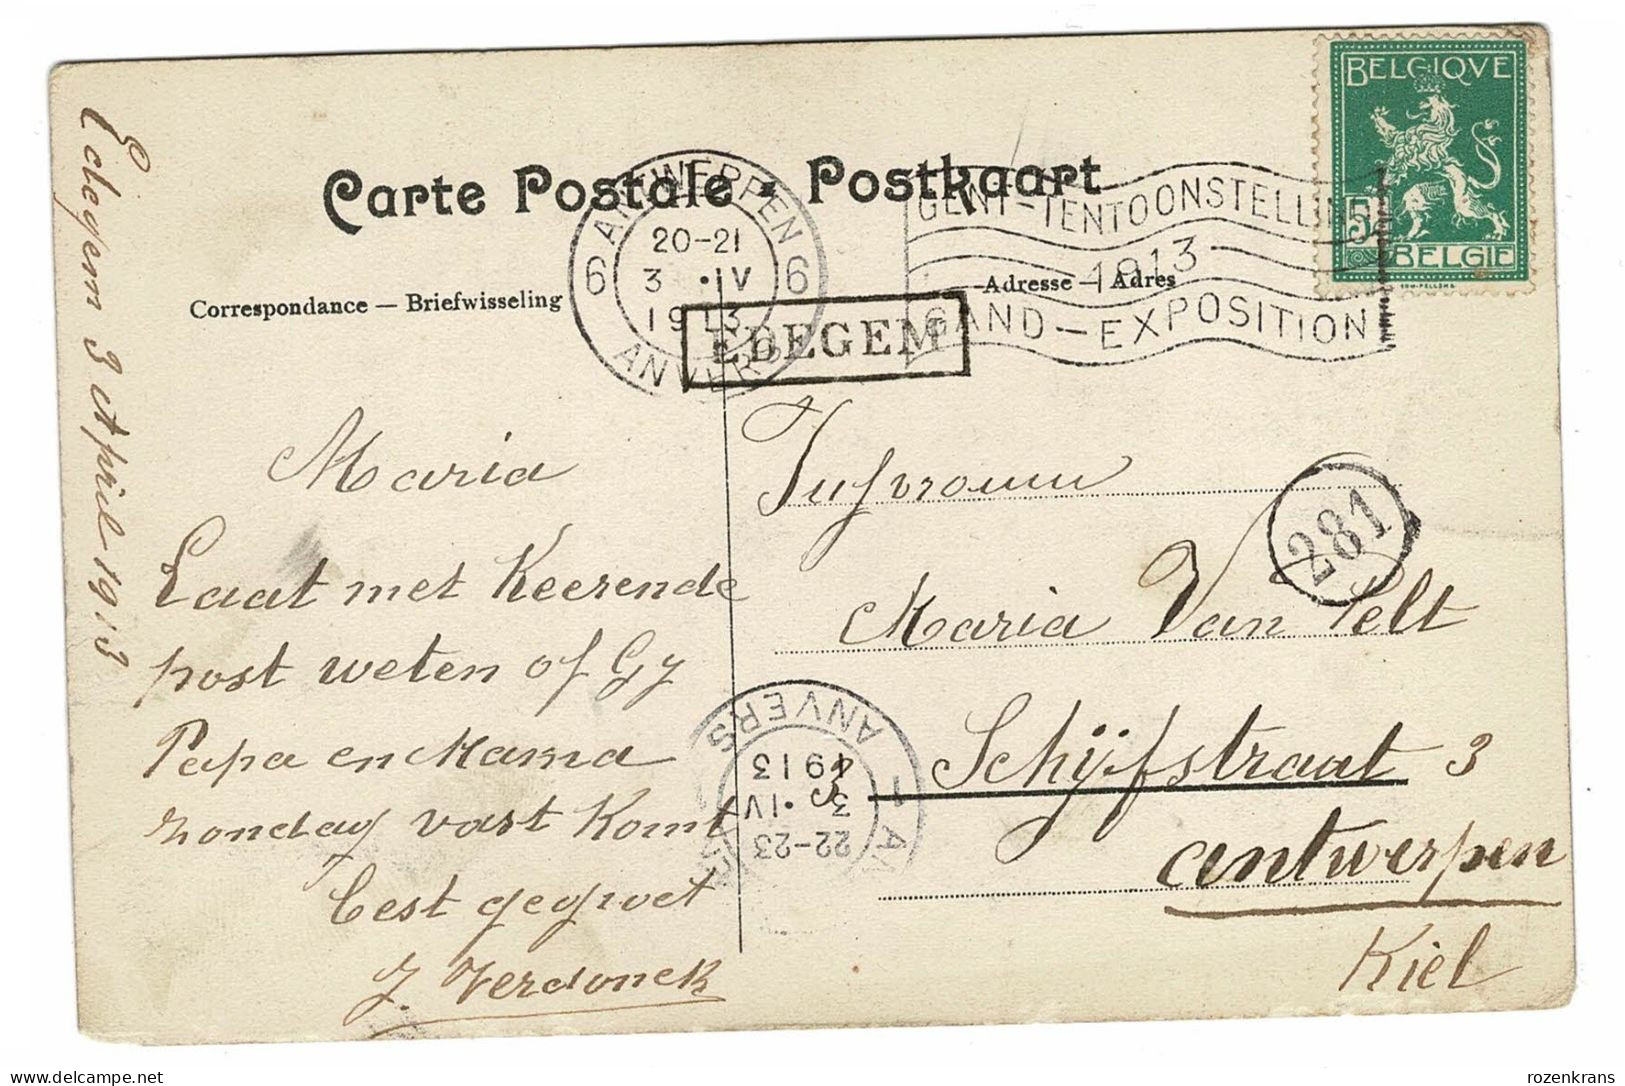 Carte Postale • Postkaart
BELGIQVE
5
BELGIE
ANTWERPEN
20-21
3 • IV
1913
6 6
ANVERS
GENT-TENTOONSTELLING
1913
GAND-EXPOSITION
Correspondance — Briefwisseling
Adresse — Adres
EDEGEM
Edegem 3 April 1913
Maria
Laat met Keerende
post weten of Gy
Papa en Mama
zondag vast Komt
best gegroet
J. Verdonck
Jufvrouw
281
Maria Van Pelt
Schijfstraat 3
Antwerpen
Kiel
ANVERS
1913
3 • IV
22-23
rozenkrans